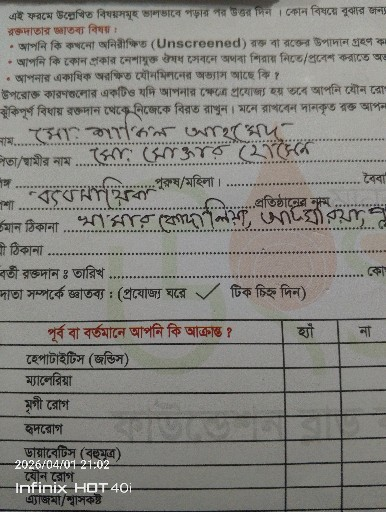 এই ফরমে উল্লেখিত বিষয়সমূহ ভালভাবে পড়ার পর উত্তর দিন । কোন বিষয়ে বুঝার জন্য
রক্তদাতার জ্ঞাতব্য বিষয় :
• আপনি কি কখনো অনিরীক্ষিত (Unscreened) রক্ত বা রক্তের উপাদান গ্রহণ ক
• আপনি কি কোন প্রকার নেশাযুক্ত ঔষধ সেবনে অথবা শিরায় নিতে/প্রবেশ করাতে অভ
• আপনার একাধিক অরক্ষিত যৌনমিলনের অভ্যাস আছে কি ?
উপরোক্ত কারণগুলোর একটিও যদি আপনার ক্ষেত্রে প্রযোজ্য হয় তবে আপনি যৌন রো
ঝুঁকিপূর্ণ বিধায় রক্তদান থেকে নিজেকে বিরত রাখুন । মনে রাখবেন দানকৃত রক্ত আপন
নাম মো: শাকিল আহমেদ
পিতা/স্বামীর নাম মো: মোক্তার হোসেন
পুরুষ/মহিলা । বৈবা
পেশা ব্যবসায়িক প্রতিষ্ঠানের নাম
র্তমান ঠিকানা খামার কোদালিয়া,
ঠিকানা
বর্তী রক্তদান ঃ তারিখ কো
দাতা সম্পর্কে জ্ঞাতব্য : (প্রযোজ্য ঘরে ✓ টিক চিহ্ন দিন)
পূর্ব বা বর্তমানে আপনি কি আক্রান্ত ? হ্যাঁ না
হেপাটাইটিস (জন্ডিস)
ম্যালেরিয়া
মৃগী রোগ
হৃদরোগ
ফাউন্ডেশন ব্লাড ব
ডায়াবেটিস (বহুমূত্র)
2026/04/01 21:02
যৌন রোগ
Infinix HOT 40i
এ্যাজমা/শ্বাসকষ্ট